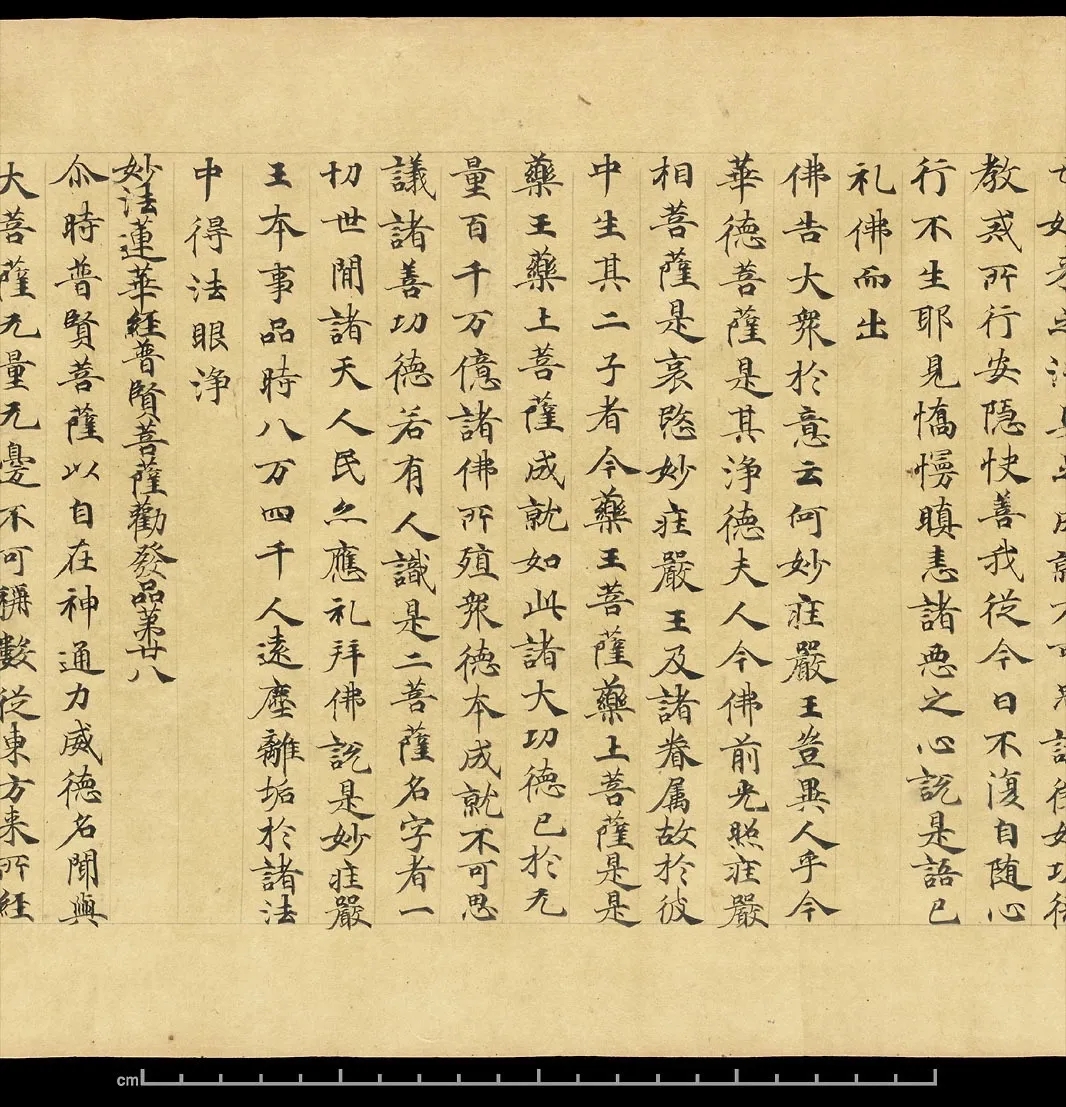 教戒所行安隱快善我從今日不復自随心
行不生耶見憍慢瞋恚諸惡之心說是語已
礼佛而出
佛告大眾於意云何妙莊嚴王豈異人乎今
華德菩薩是其淨德夫人今佛前光照莊嚴
相菩薩是哀愍妙莊嚴王及諸眷属故於彼
中生其二子者今藥王菩薩藥上菩薩是是
藥王藥上菩薩成就如此諸大功德已於无
量百千万億諸佛所殖眾德本成就不可思
議諸善功德若有人識是二菩薩名字者一
切世間諸天人民亦應礼拜佛說是妙莊嚴
王本事品時八万四千人遠塵離垢於諸法
中得法眼淨
妙法蓮華經普賢菩薩勸發品第廿八
尒時普賢菩薩以自在神通力威德名聞與
大菩薩无量无邊不可稱數從東方来所經
cm